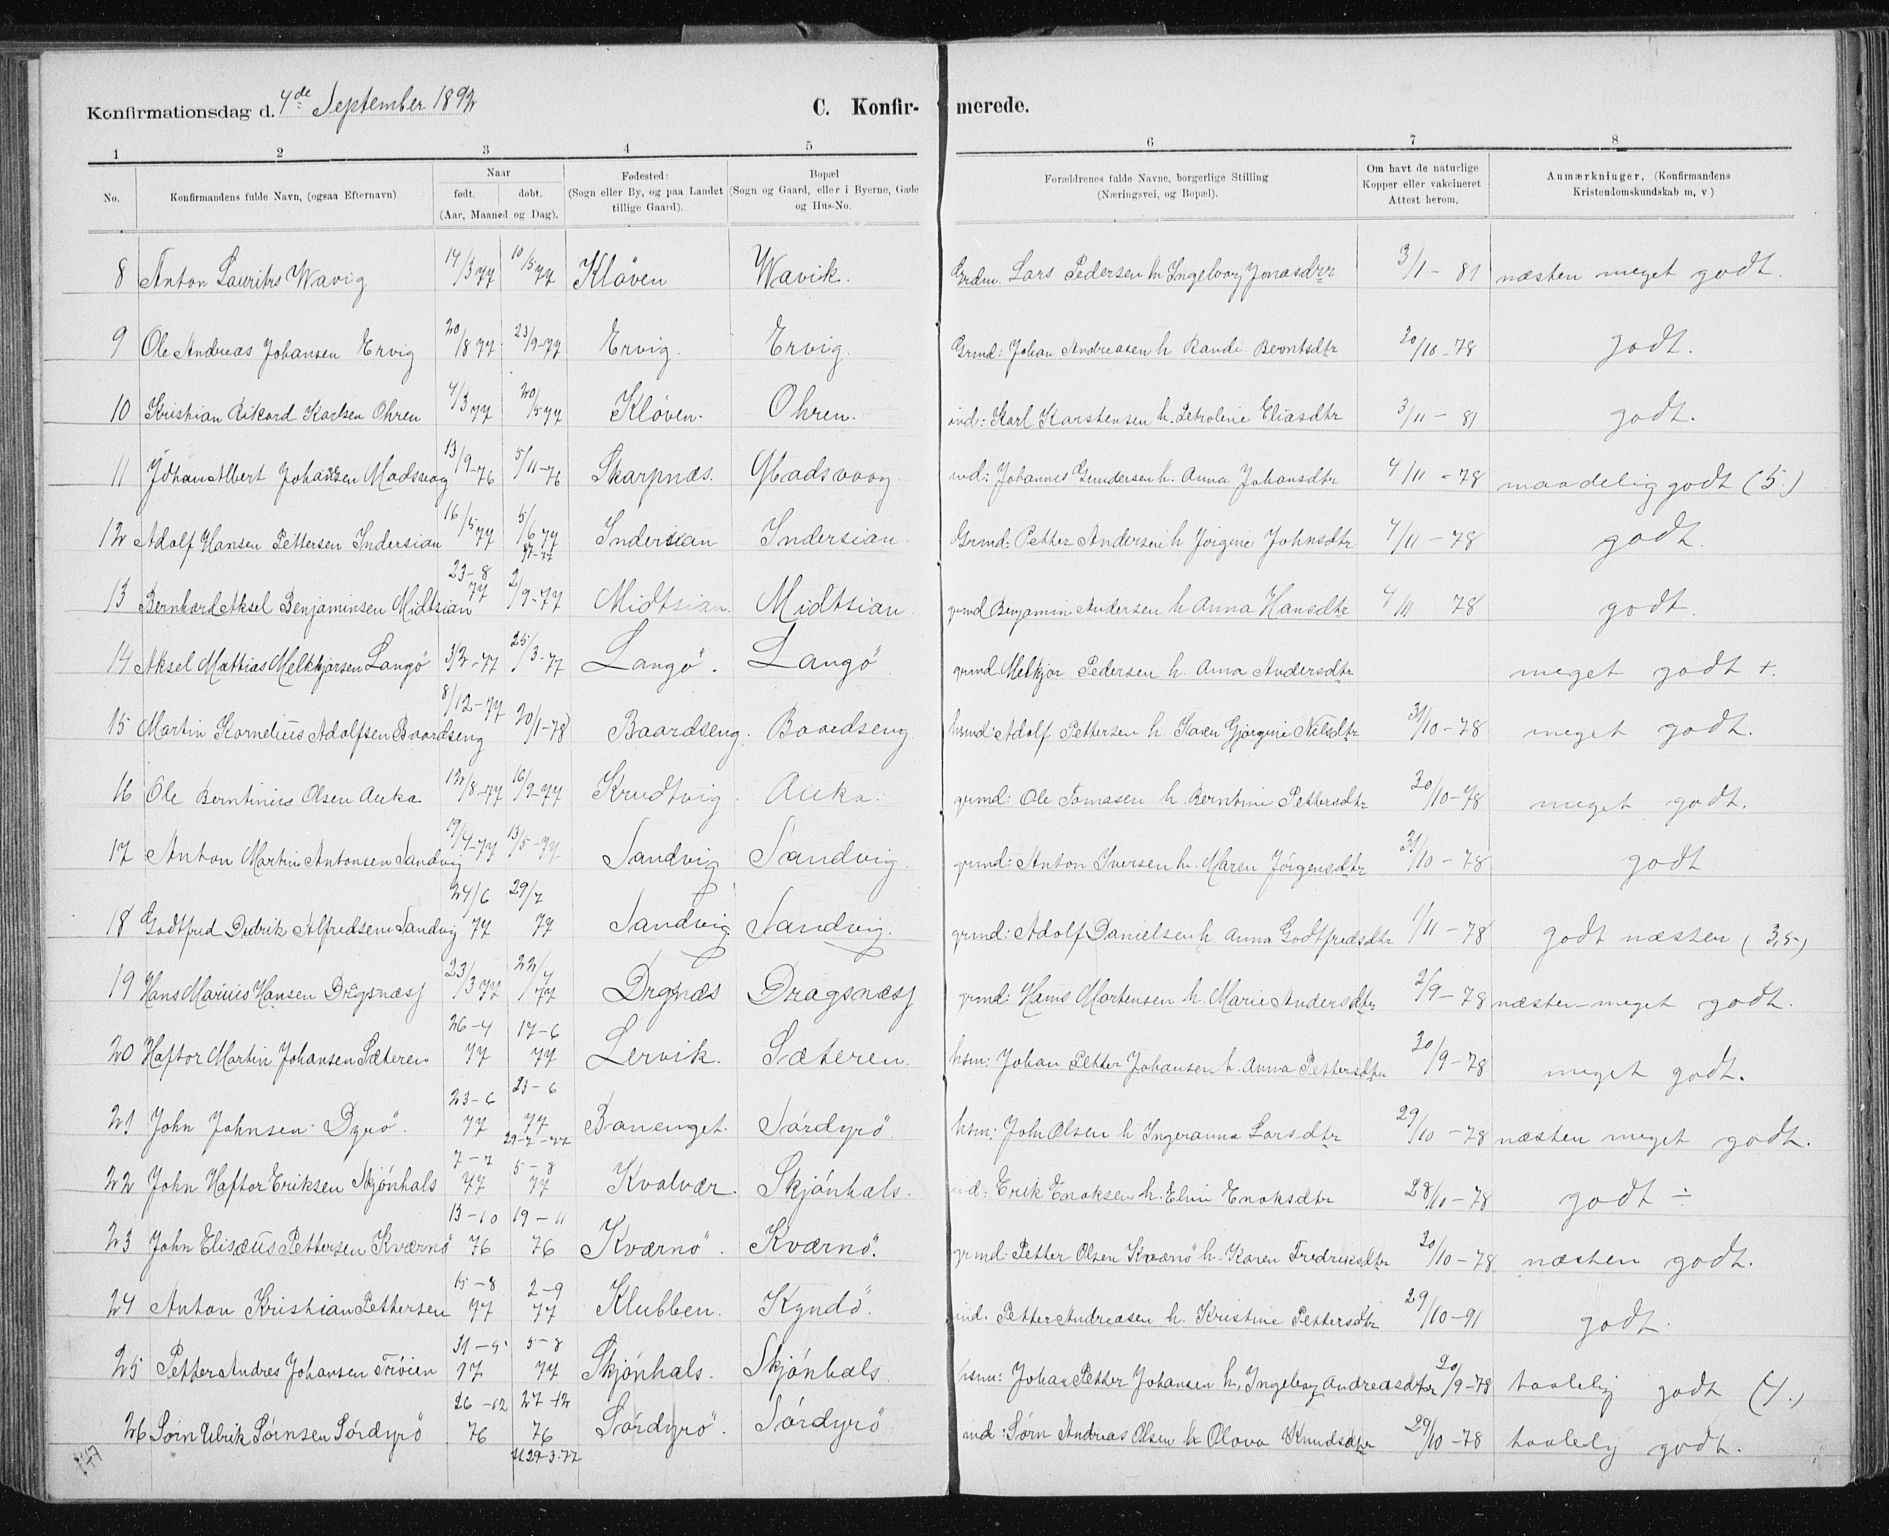 Konfirmationsdag d. 4de September 1892
C. Konfir- merede.
1 2 3 4 5 6 7 8
No. Konfirmandens fulde Navn, (ogsaa Efternavn) Naar født. døbt. (Aar, Maaned og Dag). Fødested: (Sogn eller By, og paa Landet tillige Gaard). Bopæl (Sogn og Gaard, eller i Byerne, Gade og Hus-No. Forældrenes fulde Navne, borgerlige Stilling (Næringsvei, og Bopæl). Om havt de naturlige Kopper eller vakcineret Attest herom. Anmærkninger, (Konfirmandens Kristendomskundskab m, v)
8 Anton Lauritzs Wavig 14/3 77 10/5 77 Kløven Wavik. Lars Pedersen h Ingeborg Jonasdtr 3/11 - 81 næsten meget godt.
9 Ole Andreas Johansen Ervig 20/8 77 23/9-77 Ervig. Ervig. Grmd: Johan Andreasen h Randi Berntsdtr 30/10-78 godt.
10 Kristian Rikard Karlsen Ohren 4/3 77 20/5 77 Kløven. Ohren. ind: Karl Karstensen h. Petroline Eliasdtr 3/11 - 81 godt.
11 Johan Albert Johansen Madsvaag 13/9-76 5/11-76 Skarpnæs. Madsvaag. ind: Johannes Gundersen h. Anna Johansdtr 4/11 - 78 maadelig godt (5.)
12 Adolf Hansen Pettersen Indersian 16/5 77 5/6 77 Indersian Indersian. Grmd: Petter Andersen h Jørgine Johnsdtr 4/11 - 78 godt.
13 Bernhard Aksel Benjaminsen Midtsian 23-8 77 2/9-77 Midtsian. Midtsian grmd Benjamin Andersen h Anna Hansdtr 4/11 78 godt.
14 Aksel Mattias Melkkjorsen Langø 3/2-77 25/3-77 Langø. Langø grmd. Melkjor Pedersen h. Ana Andersdtr meget godt +.
15 Martin Kornelius Adolfsen Baardseng 8/12-77 20/1-78 Baardseng. Baardseng. hsmd: Adolf Pettersen h Karen Gjørgine Nilsdtr 31/10-78 meget godt.
16 Ole Berntinius Olsen Auka 12/8-77 16/9-77 Krudtvig. Auka. grmd: Ole Tomasen h. Berntine Pettersdtr 30/10-78 meget godt.
17 Anton Martin Antonsen Sandvig 19/4-77 13/5-77 Sandvig Sandvig. grmd: Anton Iversen h. Maren Jørgensdtr 31/10-78 godt
18 Godtfred Dedrik Alfredsen Sandvig 24/6 77 29/7 77 Sandvig. Sandvig. grmd: Adolf Danielsen h. Anna Godtfredsdtr 1/11-78 godt næsten (3,5)
19 Hans Marius Hansen Dragsnæs 23/3 77 22/4 77 Drgnæs Dragsnæs grmd: Hans Mortensen h. Marie Andersdtr 2/9-78 næsten meget godt.
20 Haftor Martin Johansen Sæteren 26-4 77 17-6 77 Lervik. Sæteren. hsm: Johan Petter Johansen h. Anna Pettersdtr 30/9-78 meget godt.
21 John Johnsen Dyrø. 23-6 77 23-6 77 Banenget. Sørdyrø. hsm: John Olsen h Ingeranna Larsdtr 29/10-78 næsten meget godt.
29-7-77
22 John Haftor Eriksen Skjønhals 7-7 77 5-8 77 Kvalvær. Skjønhals. ind: Erik Enoksen h. Elin Enoksdtr 28/10-78 godt ÷
23 John Elisæus Pettersen Kværnø 13-10 76 19-11 76 Kværnø. Kværnø. grmd: Petter Olsen Kværnø h. Karen Fredriksdtr 30/10-78 næsten godt.
24 Anton Kristian Pettersen 15-8 77 2-9 77 Klubben. Kyndø. ind. Petter Andreasen h. Kristine Pettersdtr 29/10-91 godt.
25 Petter Andres Johansen Trøien 31-5 77 5-8 77 Skjønhals. Skjønhals. hsm: Johan Petter Johansen h. Ingeborg Andreasdtr 30/9-78 taalelig godt (4.)
26 Sørn Ulrik Sørnsen Sørdyrø 26-12 76 27-12 76 Sørdyrø. Sørdyrø ind: Sørn Andreas Olsen h Olava Knudsdtr 29/10-78 taalelig godt.
29-3-77